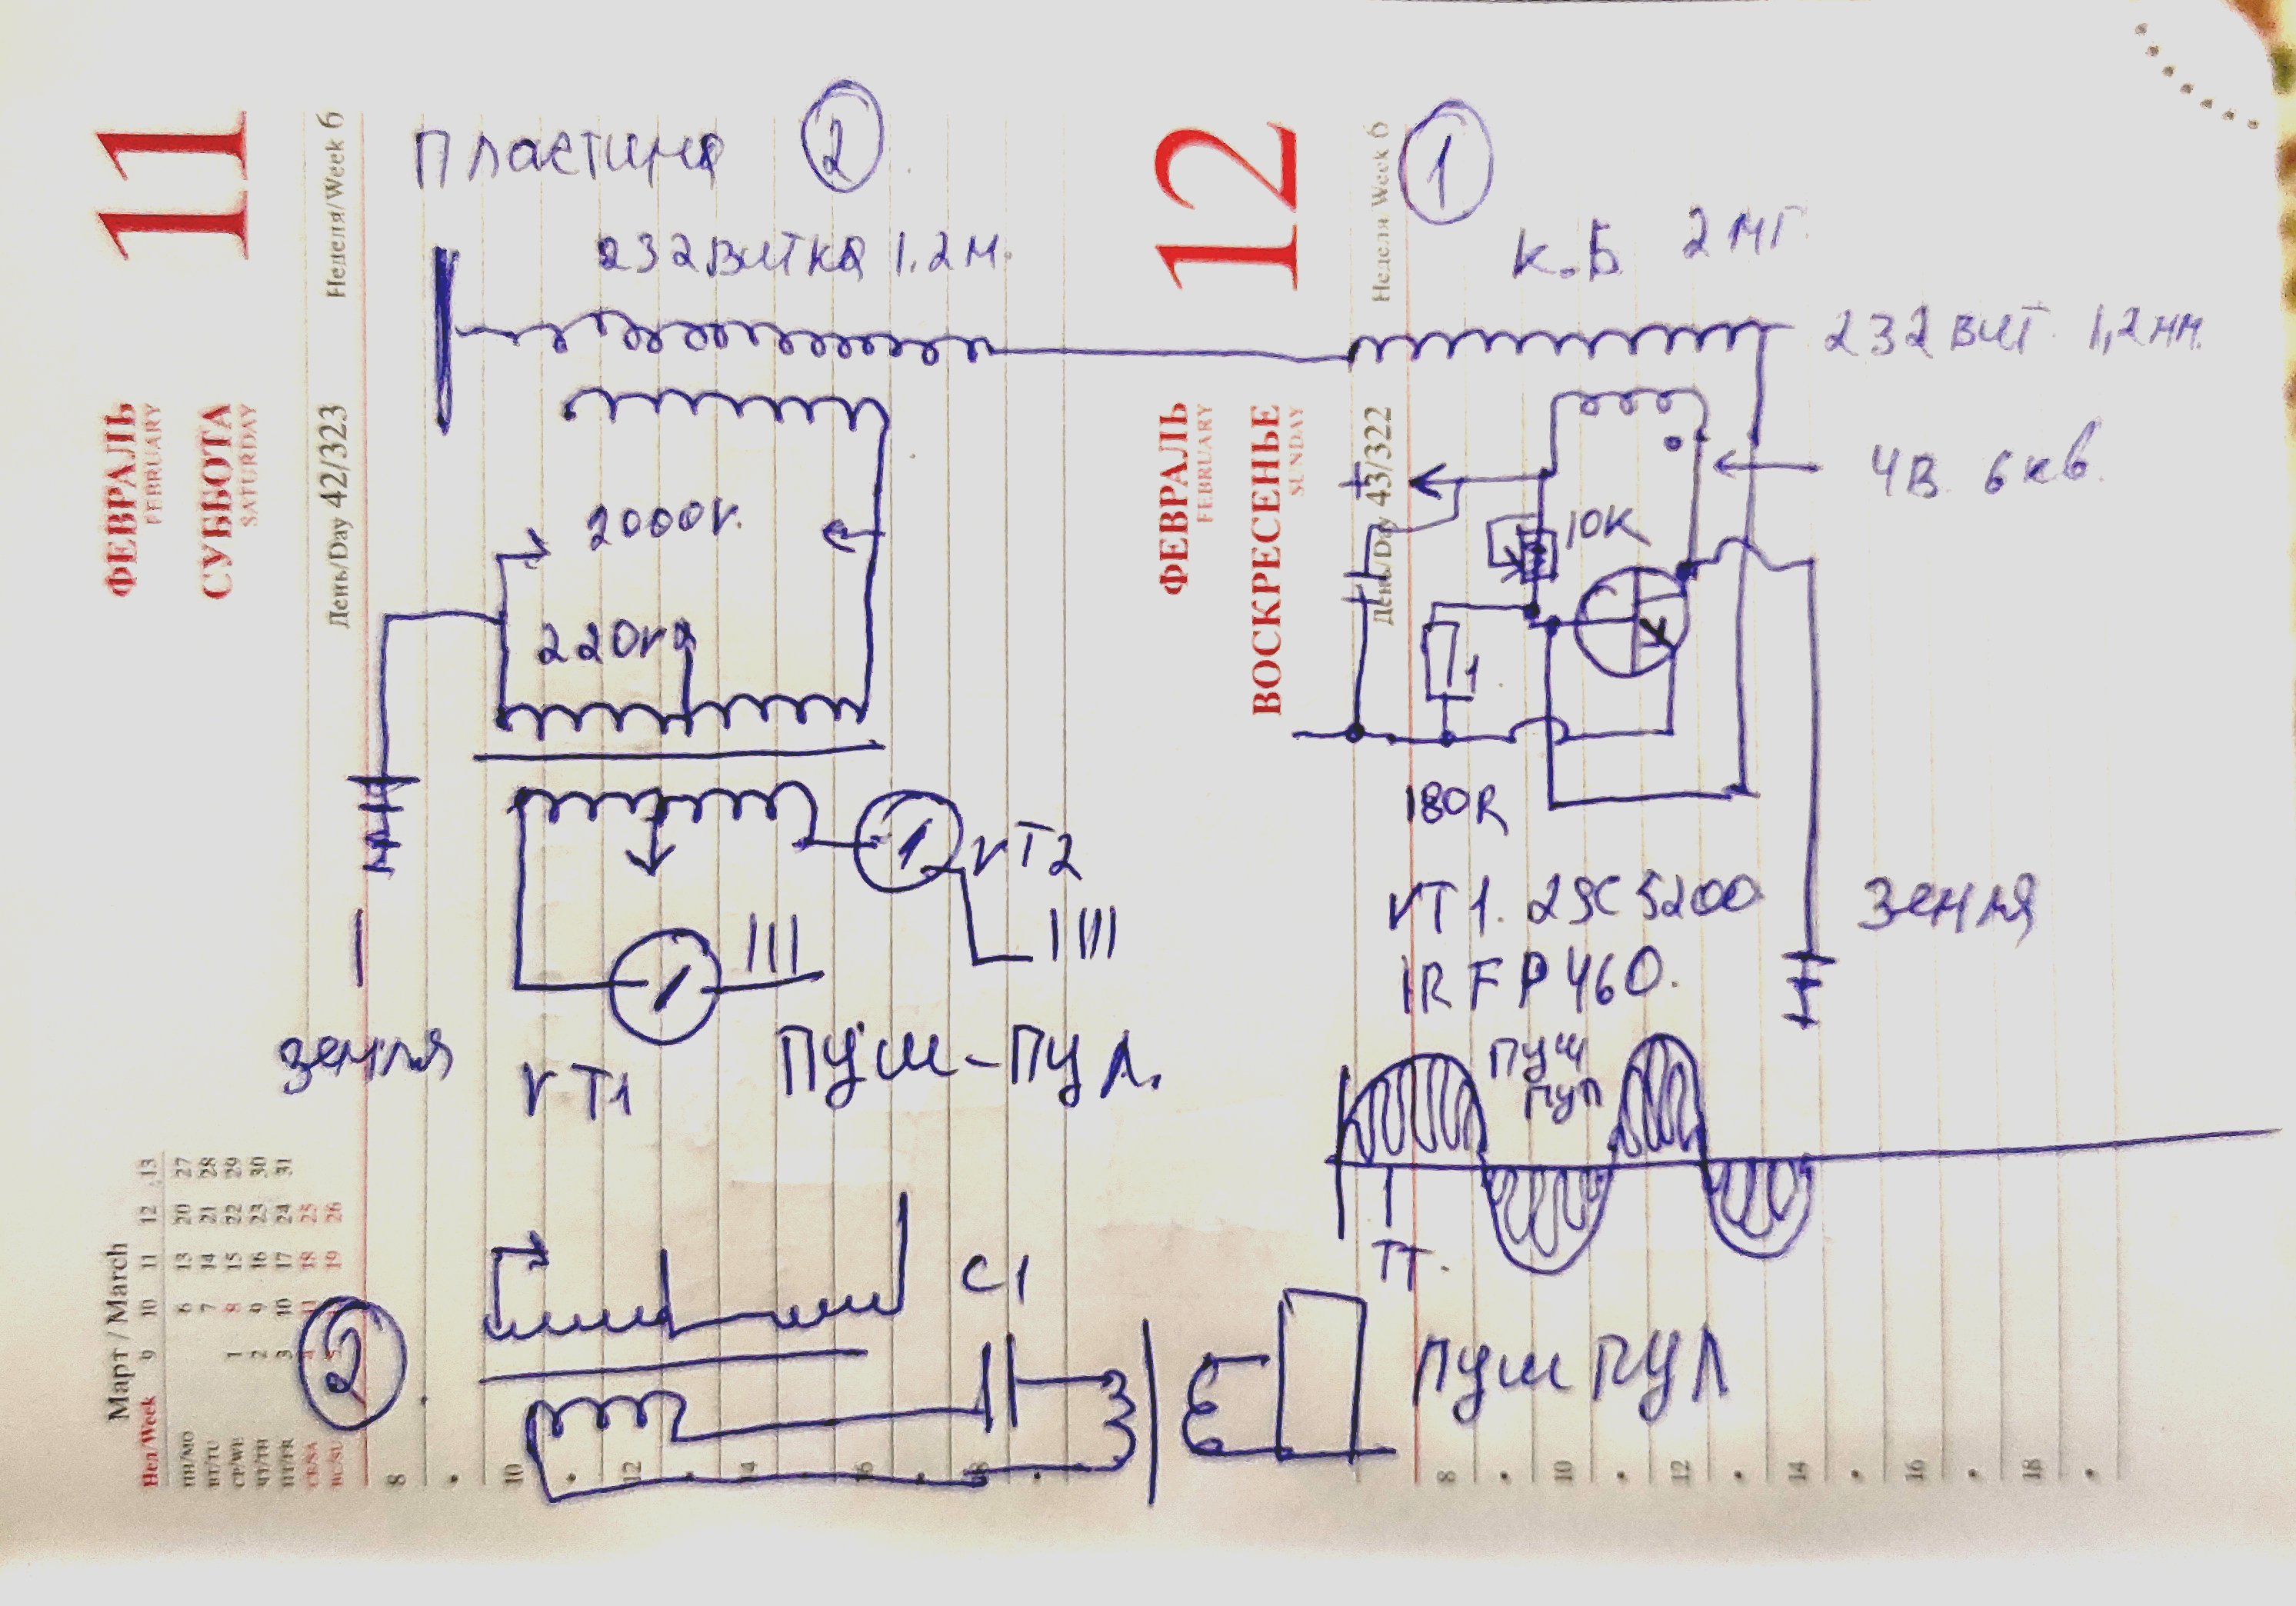 11
ФЕВРАЛЬ
FEBRUARY
СУББОТА
SATURDAY
Неделя/Week 6
День/Day 42/323
Пластина 2
232 витка 1.2 м.
2000v.
220v
VT2
VT1
Земля
Пуш-пул.
Март / March
Нед/Week 9 10 11 12 13
ПН/MO 6 13 20 27
ВТ/TU 7 14 21 28
СР/WE 1 8 15 22 29
ЧТ/TH 2 9 16 23 30
ПТ/FR 3 10 17 24 31
СБ/SA 4 11 18 25
ВС/SU 5 12 19 26
2
C1
8 10 12 14 16 18
12
ФЕВРАЛЬ
FEBRUARY
ВОСКРЕСЕНЬЕ
SUNDAY
Неделя/Week 6
День/Day 43/322
1
К.Б 2 мг.
232 вит 1,2 мм.
4в 6 кв.
+
10К
1
180R
VT1. 2SC5200
IRFP460.
Земля
Пуш
пул
ТТ.
Пуш пул
8 10 12 14 16 18